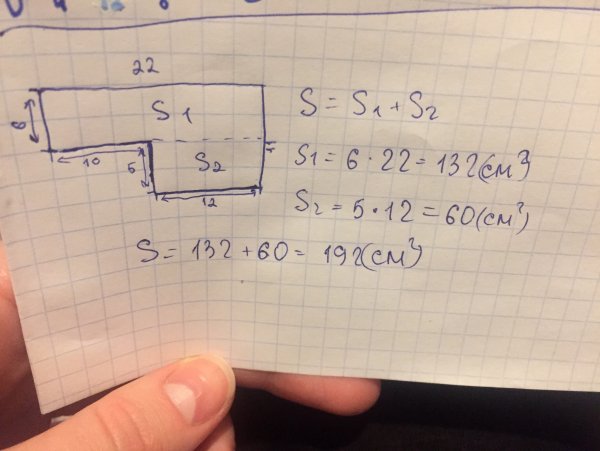 22
S1
6
10
5
S2
11
12
S = S1 + S2
S1 = 6 · 22 = 132 (см²)
S2 = 5 · 12 = 60 (см²)
S = 132 + 60 = 192 (см²)